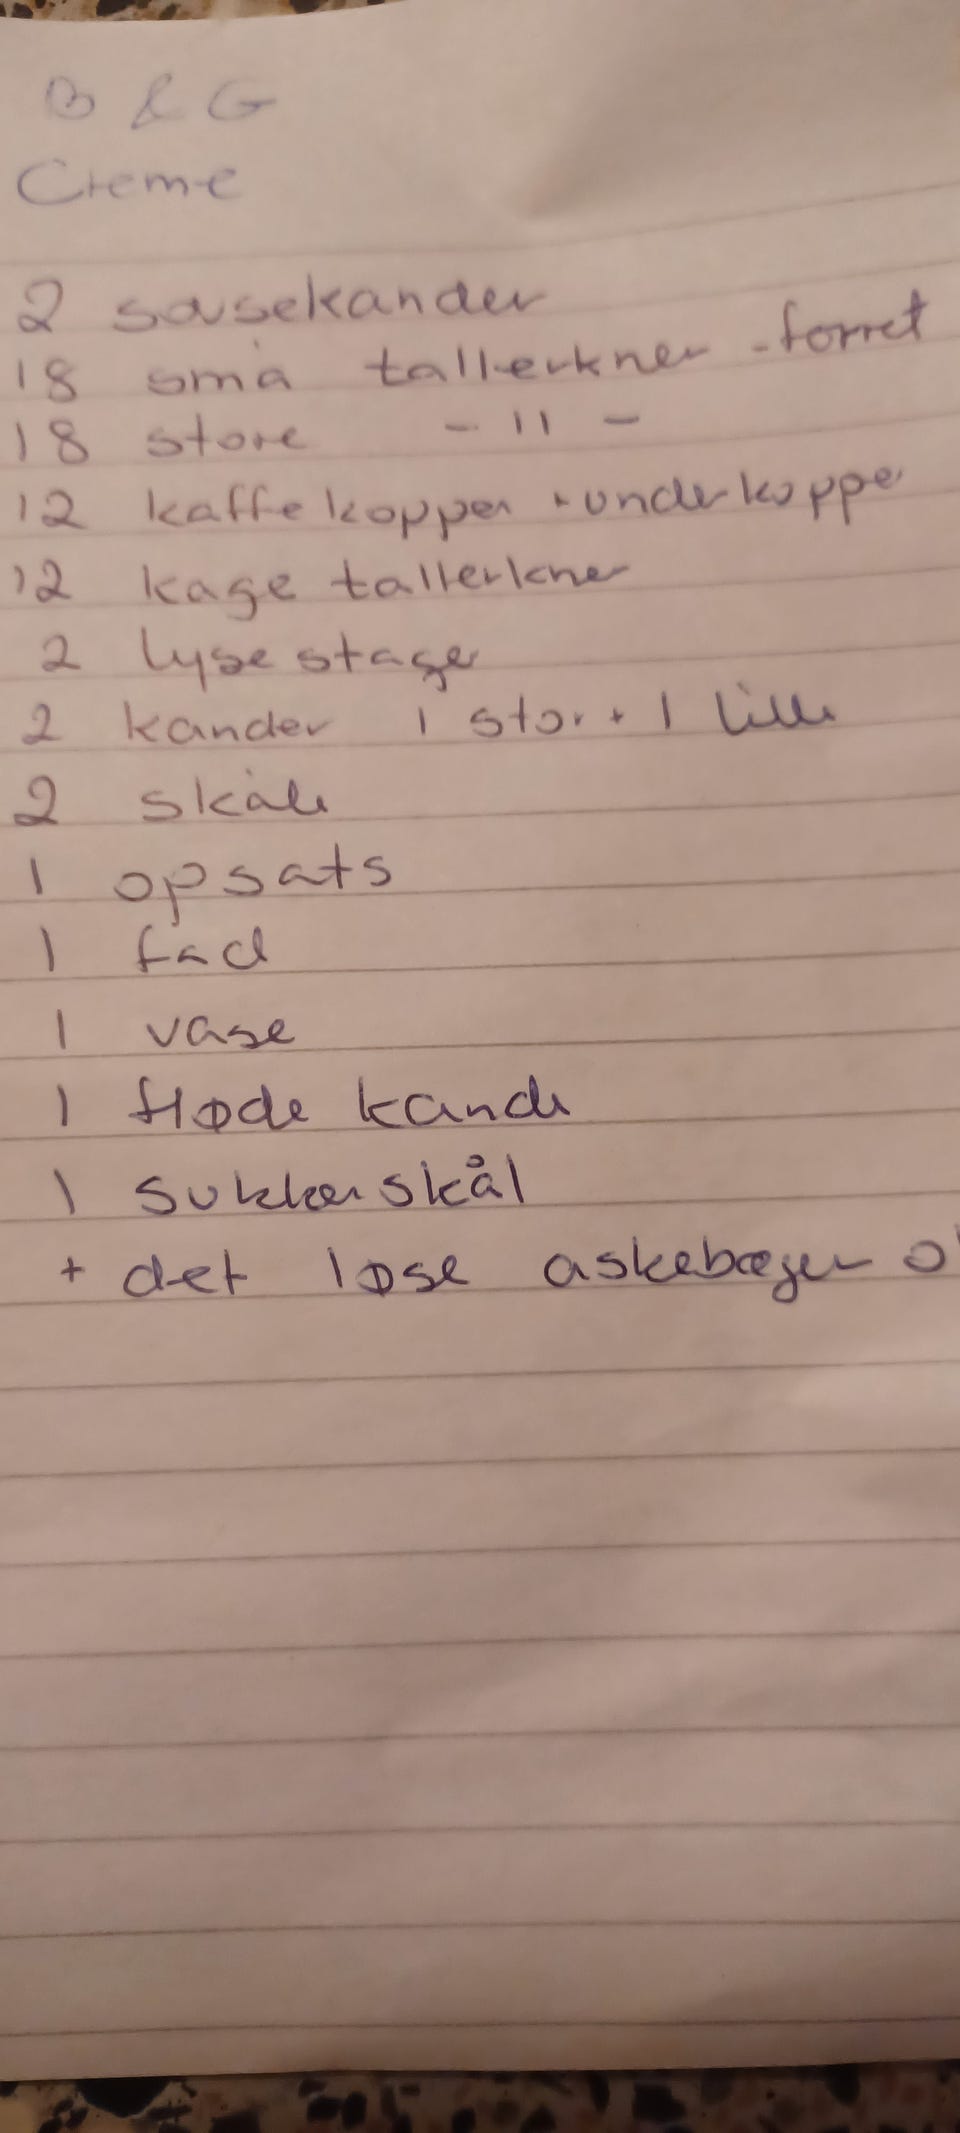 B & G
Creme
2 sovsekander
18 små tallerkner - forret
18 store - 11 -
12 kaffekopper + underkoppe
12 kage tallerkner
2 lysestager
2 kander 1 stor + 1 lille
2 skåle
1 opsats
1 fad
1 vase
1 fløde kande
1 sukkerskål
+ det løse askebæger